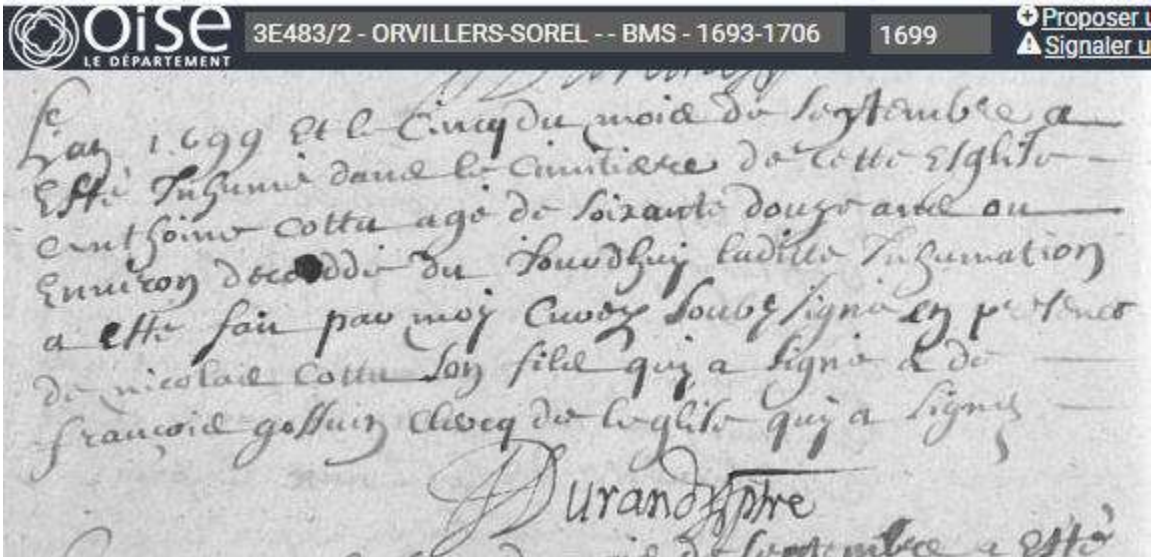 Oise
LE DÉPARTEMENT
3E483/2 - ORVILLERS-SOREL -- BMS - 1693-1706
1699
Proposer u
Signaler u
Lan 1699 Et le Cincq du mois de Septembre a
Esté Inhumé dans le Cimitiere de cette Esglise
anthoine Cottu agé de soixante douze ans ou
Environ decedde du Jourdhuy laditte Inhumation
a esté fait par moy Curez soubsigné en presence
de nicolais Cottu son fils quy a signé & de
françois gossuin Clercq de leglise quy a signez
Durand ptre
de septembre a Esté